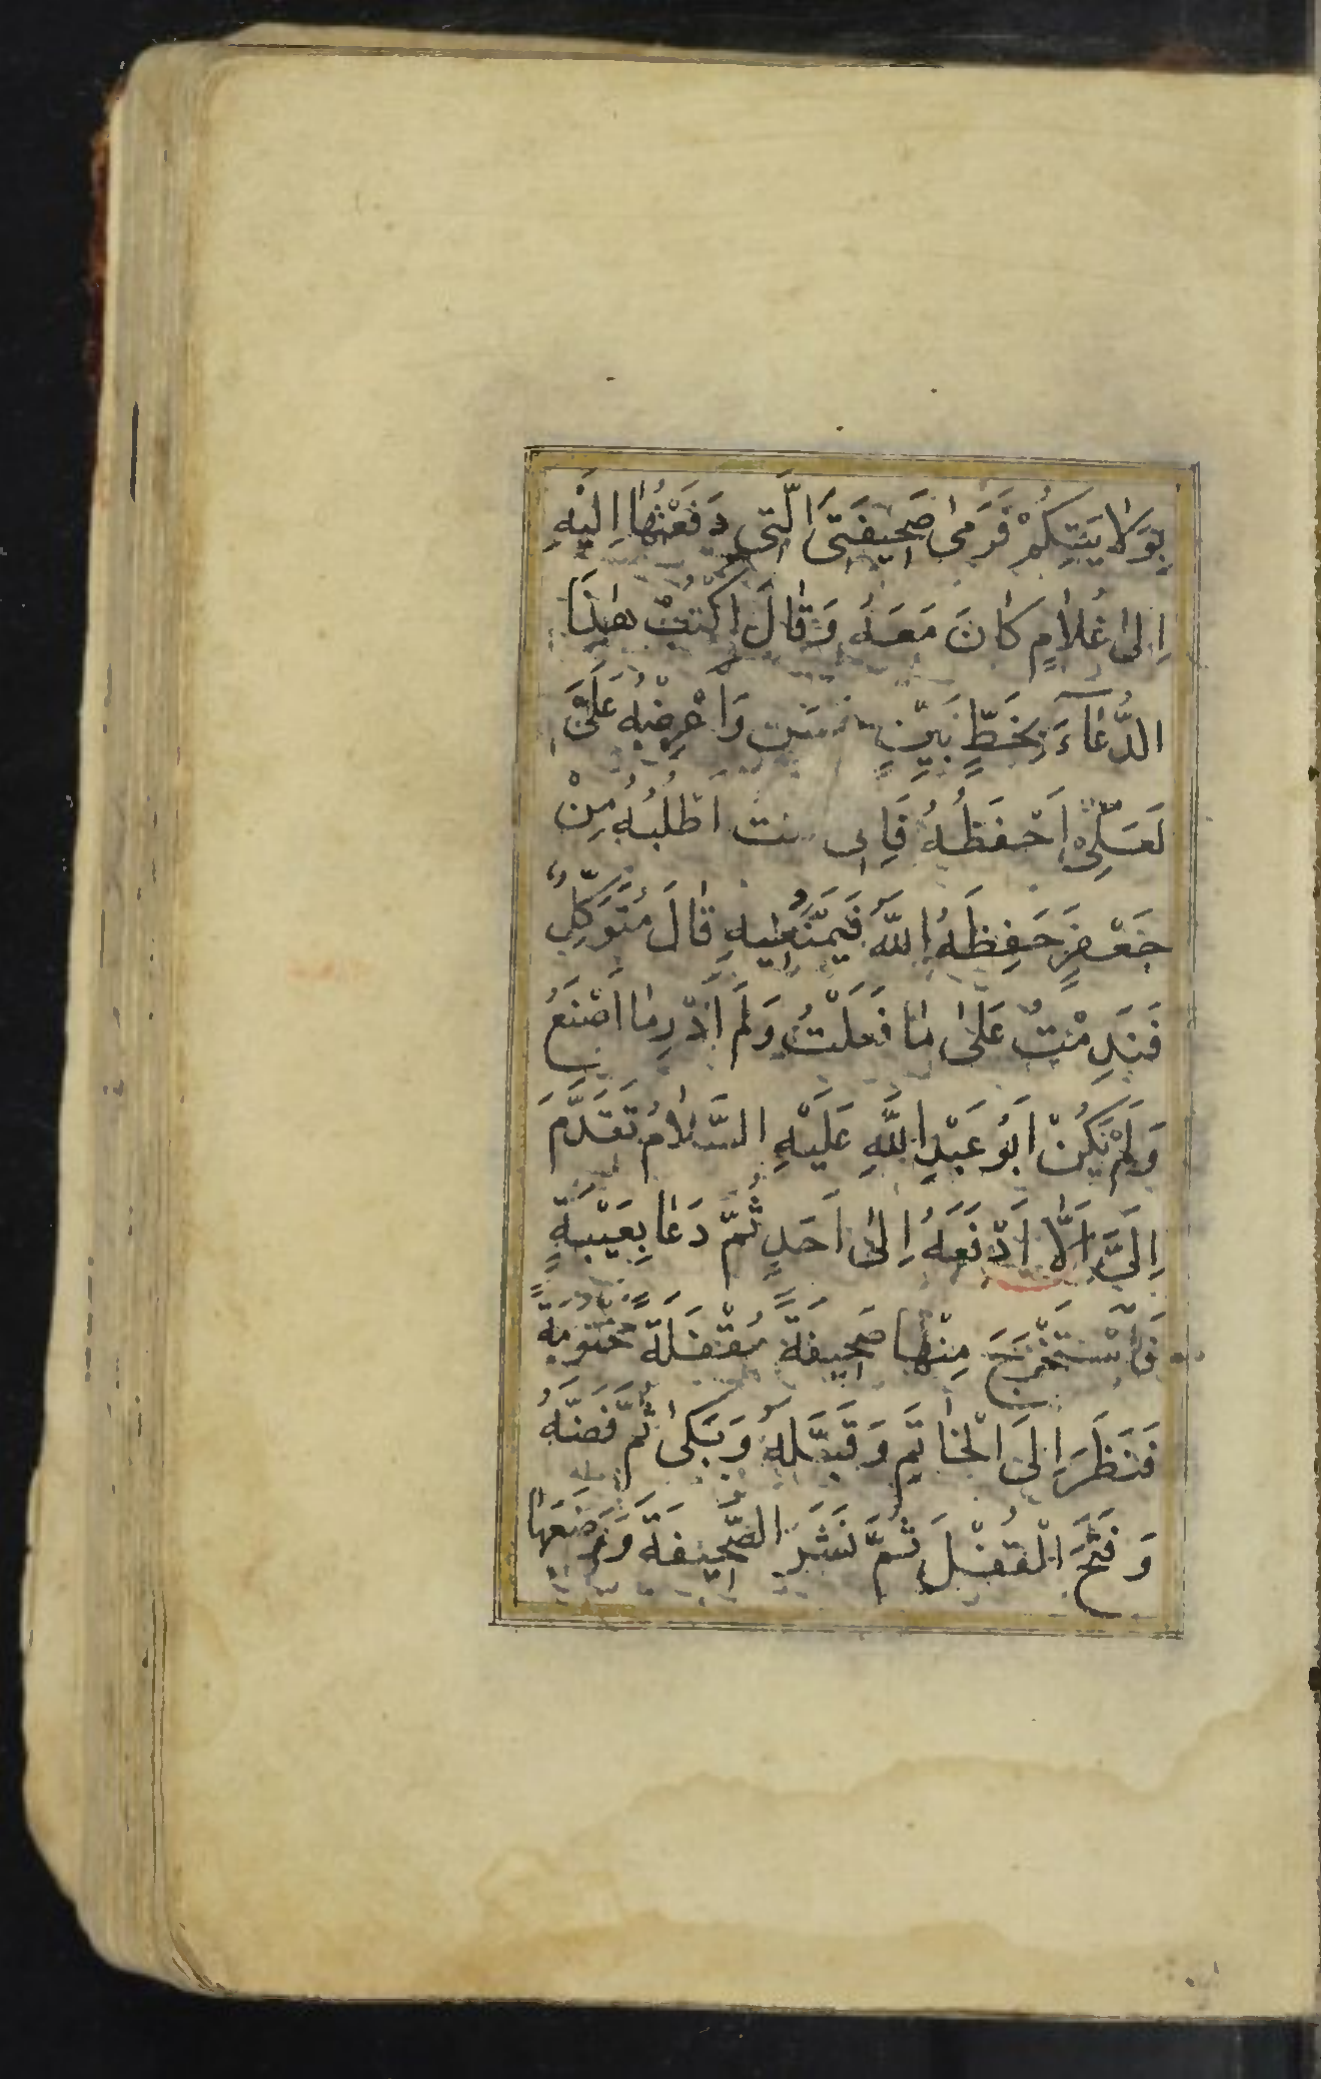 بِوَلٰايَتِكُمْ فَرَمىٰ صَحِيفَتِىَ الَّتِى دَفَعْتُهٰا اِلَيْهِ
اِلىٰ غُلٰامٍ كٰانَ مَعَهُ وَقٰالَ اكْتُبْ هٰذَا
الدُّعٰآءَ بِخَطٍّ بَيِّنٍ حَسَنٍ وَاعْرِضْهُ عَلَىَّ
لَعَلِّى اَحْفَظُهُ فَاِنّى كنت اَطْلُبُهُ مِنْ
جَعْفَرٍ حَفِظَهُ اللّٰهُ فَيَمْنَعُنِيهِ قٰالَ مُتَوَكِّلٌ
فَنَدِمْتُ عَلىٰ مٰا فَعَلْتُ وَلَمْ اَدْرِ مٰا اَصْنَعُ
وَلَمْ يَكُنْ اَبُو عَبْدِ اللّٰهِ عَلَيْهِ السَّلٰامُ تَقَدَّمَ
اِلَىَّ اَلّٰا اَدْفَعَهُ اِلىٰ اَحَدٍ ثُمَّ دَعٰا بِعَيْبَةٍ
فَاسْتَخْرَجَ مِنْهٰا صَحِيفَةً مُقْفَلَةً مَخْتُومَةً
فَنَظَرَ اِلَى الْخٰاتَمِ وَقَبَّلَهُ وَبَكىٰ ثُمَّ فَضَّهُ
وَفَتَحَ الْقُفْلَ ثُمَّ نَشَرَ الصَّحِيفَةَ وَوَضَعَهٰا